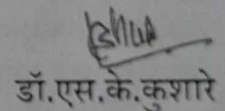 डॉ.एस.के.कुशारे